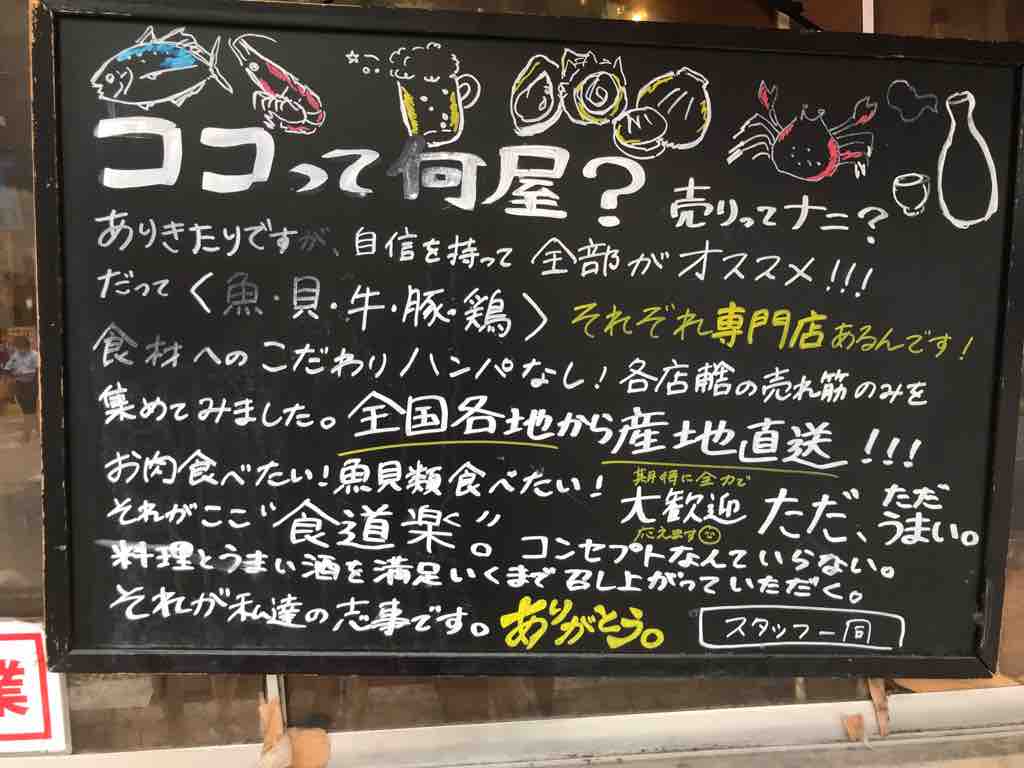 ココって何屋？ 売りってナニ？
ありきたりですが、自信を持って 全部がオススメ!!!
だって〈魚・貝・牛・豚・鶏〉それぞれ専門店あるんです！
食材へのこだわりハンパなし！各店舗の売れ筋のみを
集めてみました。全国各地から産地直送!!!
お肉食べたい！魚貝類食べたい！
期待に全力で
大歓迎
応えます
ただ、ただ
うまい。
それがここ"食道楽"。コンセプトなんていらない。
料理とうまい酒を満足いくまで召し上がっていただく。
それが私達の志事です。ありがとう。
スタッフ一同
業